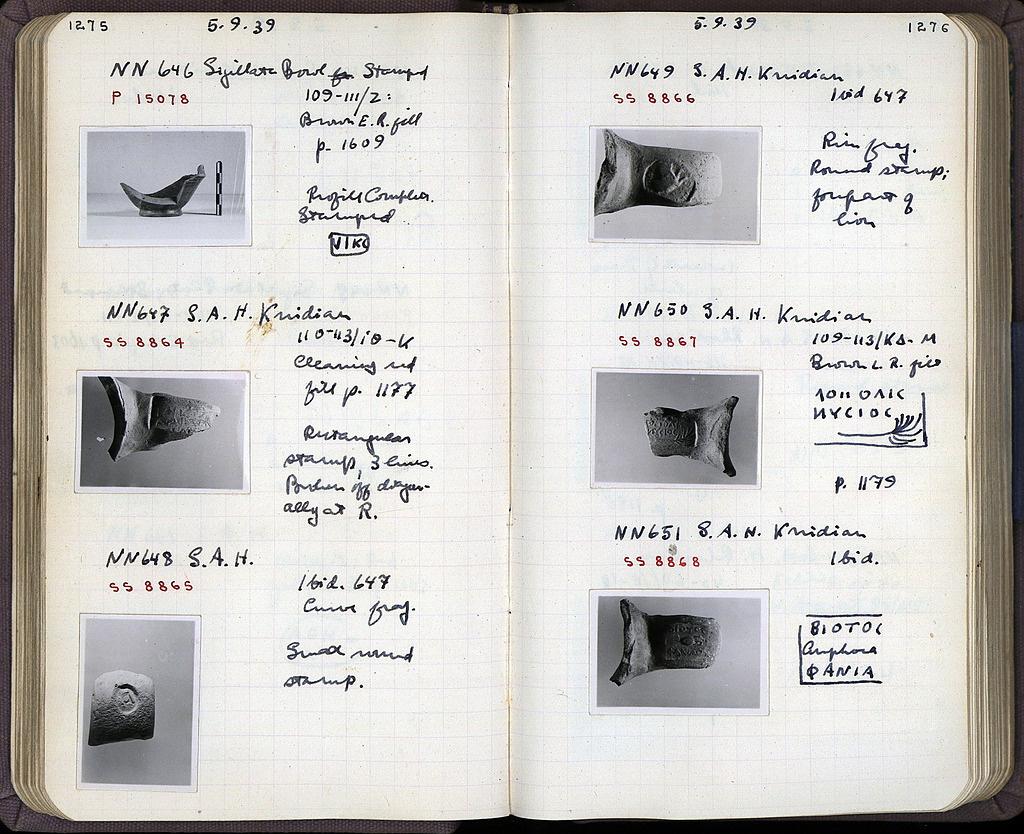 1275
5.9.39
NN 646 Sigillata Bowl Stamped
P 15078
109-III/2:
Brown E.R. fill
p. 1609
Profile Complete.
Stamped
NN647 S.A.H. Knidian
SS 8864
110-113/ΙΘ-Κ
Cleaning red
fill p. 1177
Rectangular
stamp, 3 lines.
Broken off diagon-
ally at R.
NN648 S.A.H.
SS 8865
Ibid. 647
Curve frag.
Small round
stamp.
1276
5.9.39
NN649 S.A.H. Knidian
SS 8866
Ibid 647
Rim frag.
Round stamp;
forepart of
lion
NN650 S.A.H. Knidian
SS 8867
109-113/ΚΔ-Μ
Brown L.R. fill
ΛΟΠΟΛΙϹ
ΝΥϹΙΟϹ
p. 1179
NN651 S.A.H. Knidian
SS 8868
Ibid.
ΒΙΟΤΟϹ
Amphora
ΦΑΝΙΑ